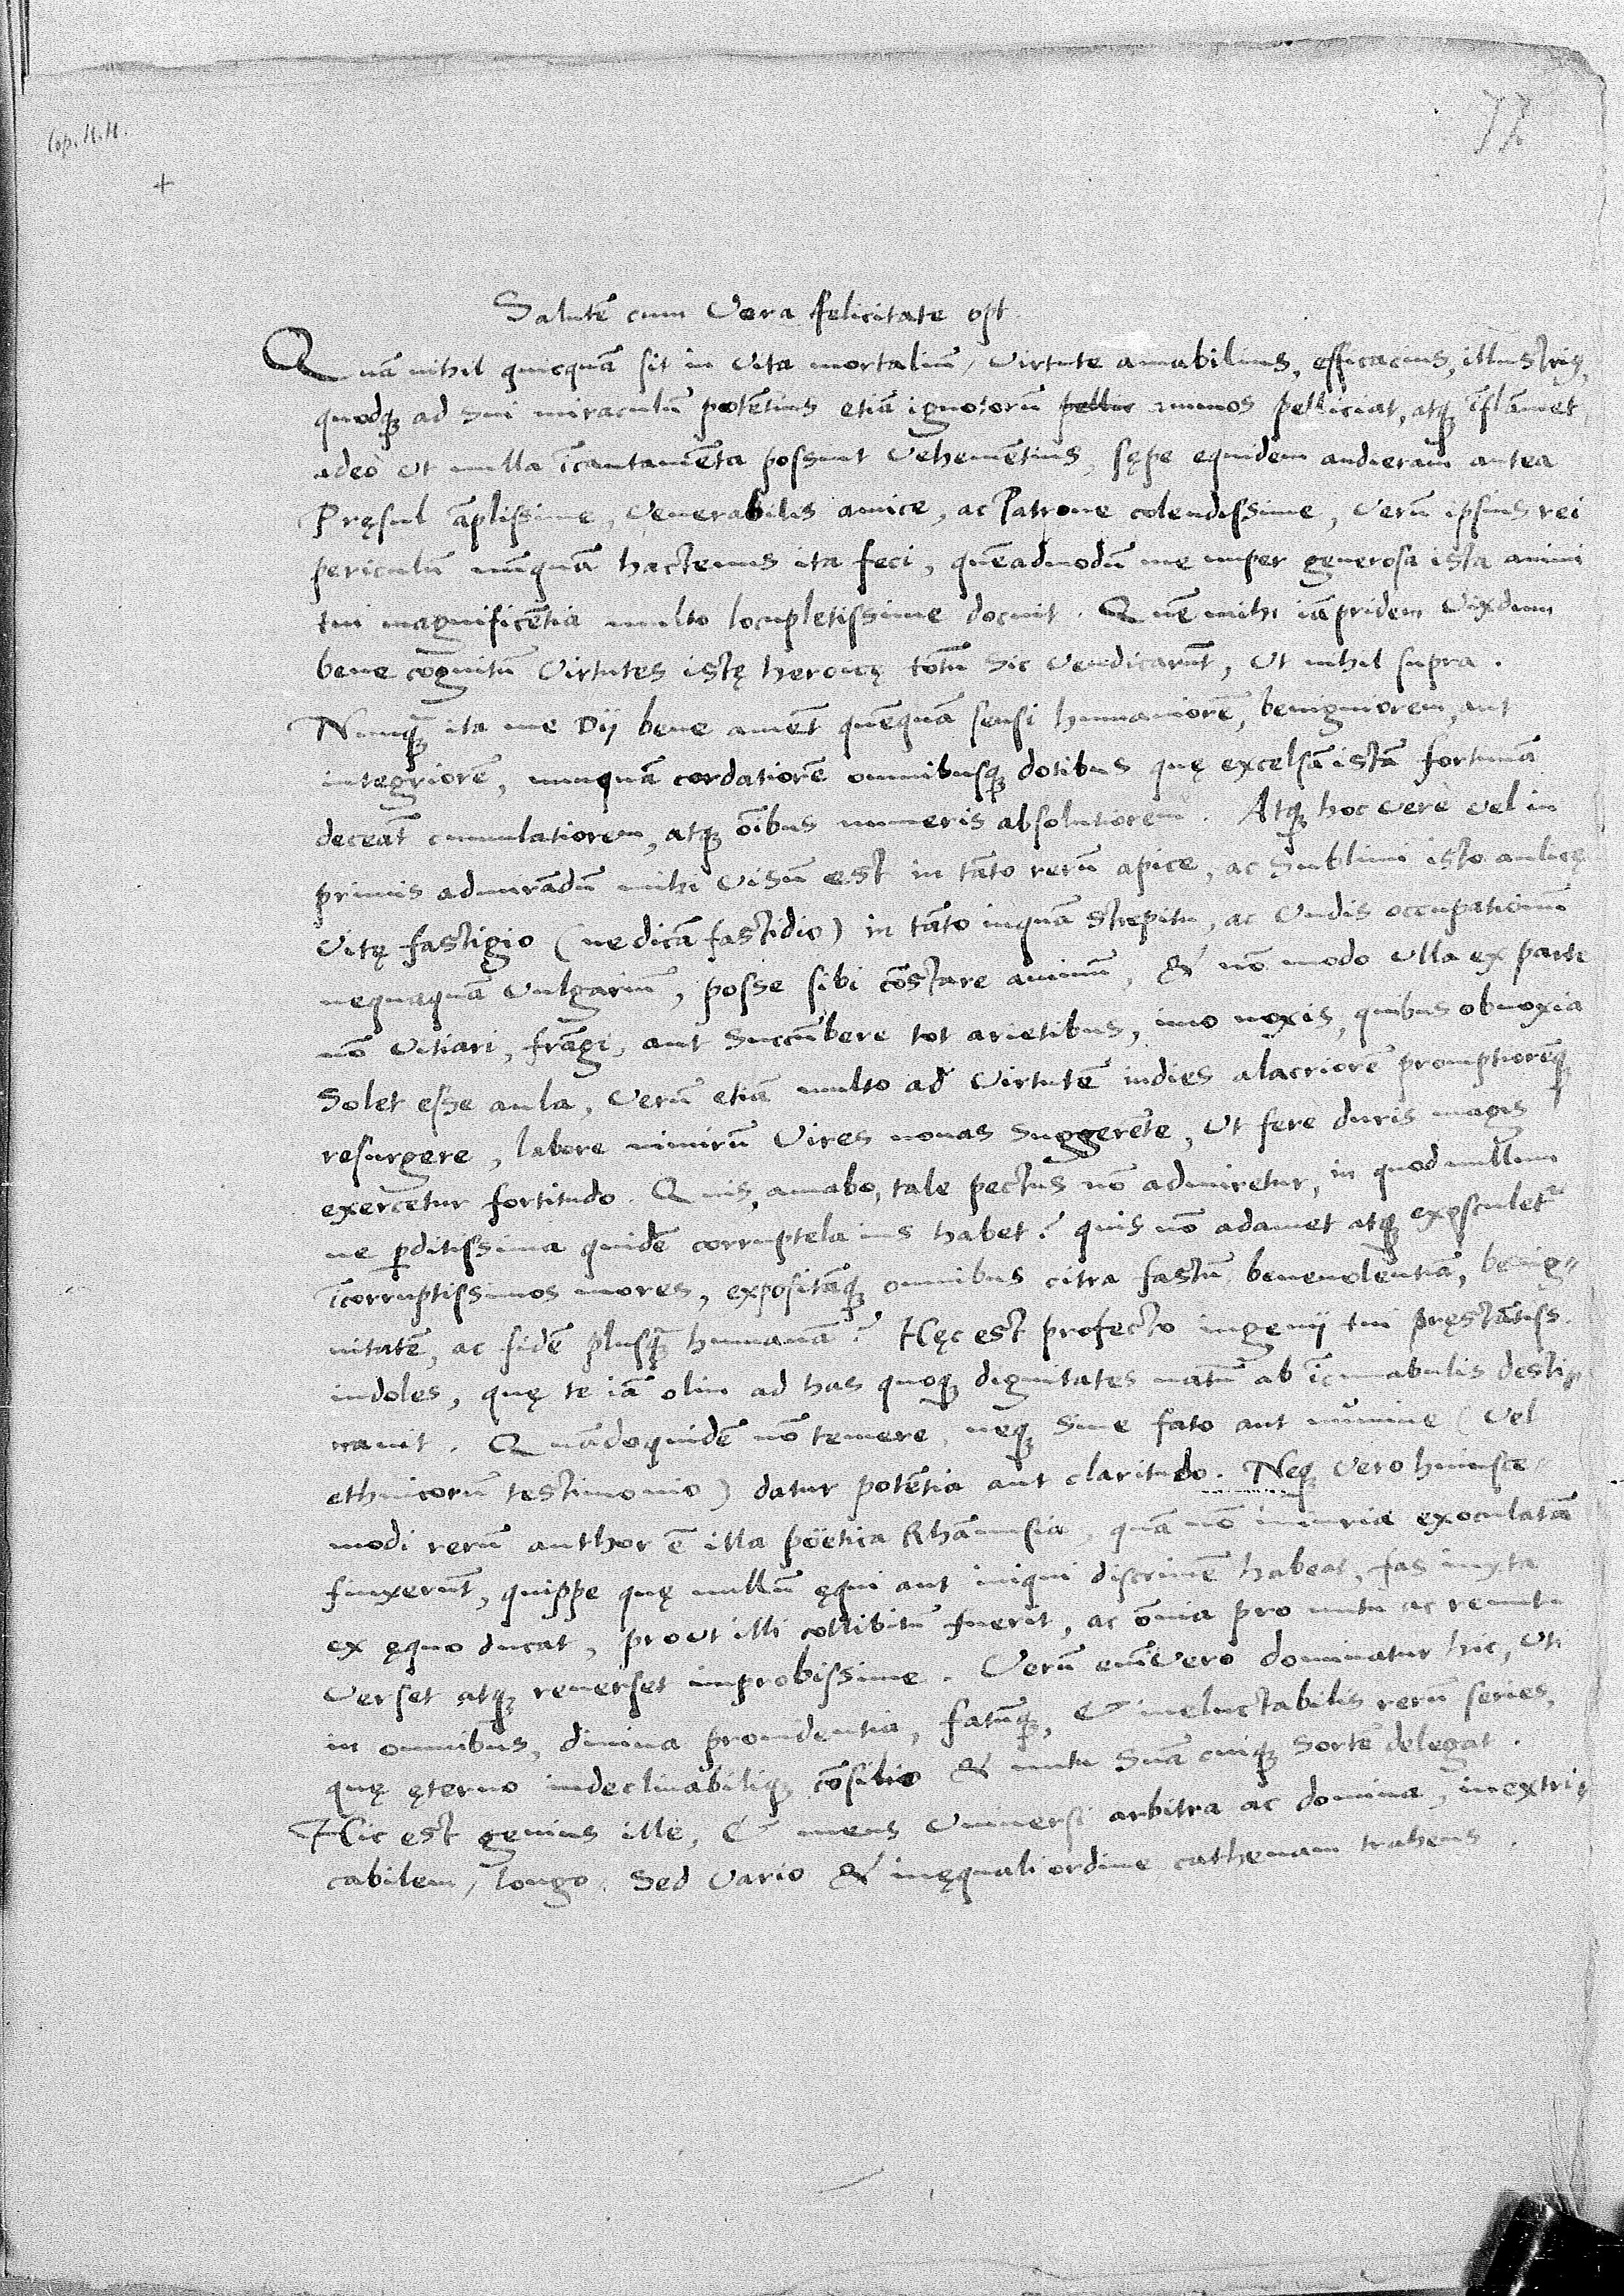 Cop. H.H.
72
+
Salutē cum Vera felicitate opt
Quā nihil quicquā sit in vita mortaliū, virtute amabilius, efficacius, illustriꝯ,
quodqꝫ ad sui miraculū potētius etiā ignotorū pellic animos pelliciat, atqꝫ īflāmet,
adeò ut nulla īcantamēta possint vehemētius, sępe equidem audieram antea
Pręsul āplissime, Venerabilis amice, ac Patrone colendissime, Verū ipsius rei
periculū nūquā hactenus ita feci, quēadmodū me nuper generosa ista animi
tui magnificētia multo locupletissime docuit. Quē mihi iāpridem Vixdum
bene cognitū virtutes istę heroicę totū sic vendicarūt, ut nihil supra.
Nunqꝫ ita me Dij bene amēt quēquā sensi humaniorē, benigniorem, aut
integriorē, nunquā cordatiorē omnibusqꝫ dotibus quę excelsā istā fortunā
deceāt cumulatiorem, atqꝫ oībus numeris absolutiorem. Atqꝫ hoc verè vel in
primis admirādū mihi visū est in tāto rerū apice, ac sublimi isto aulicę
vitę fastigio (ne dicā fastidio) in tāto inquā strepitu, ac undis occupationū
nequaquā vulgariū, posse sibi cōstare animū, & nō modo ulla ex parte
nō vitiari, frāgi, aut succūbere tot arietibus, imo noxis, quibus obnoxia
solet esse aula, verū etiā multo ad virtutē indies alacriorē promptiorēqꝫ
resurgere, labore nimirū vires novas suggerēte, ut fere duris magis
exercetur fortitudo. Quis, amabo, tale pectus nō admiretur, in quod nullum
ne ꝑditissima quidē corruptela ius habet? quis nō adamet atqꝫ exosculet~
īcorruptissimos mores, expositāqꝫ omnibus citra fastū benevolentiā, benig=
nitatē, ac fidē plusqꝫ humanā? Hęc est profecto ingenij tui pręstātiss.
indoles, quę te iā olim ad has quoqꝫ dignitates natū ab īcunabulis desti=
navit. Quādoquidē nō temere, neqꝫ sine fato aut numine (vel
ethnicorū testimonio) datur potētia aut claritudo. Neqꝫ vero huiusce=
modi rerū author ē illa poëtica Rhānusia, quā nō iniuria exoculatā
finxerūt, quippe quę nullū ęqui aut iniqui discrimē habeat, fas iuxta
ex ęquo ducat, prout illi collibitū fuerit, ac oīa pro nutu ac renutu
verset atqꝫ reverset improbissime. Verū enīvero dominatur hic, uti
in omnibus, divina providentia, fatūqꝫ, & ineluctabilis rerū series,
quę ęterno indeclinabiliqꝫ cōsilio & nutu suā cuiqꝫ sortē delegat.
Hic est genius ille, & mens universi arbitra ac domina, inextri=
cabilem, longo, sed vario & inęquali ordine cathenam trahens.